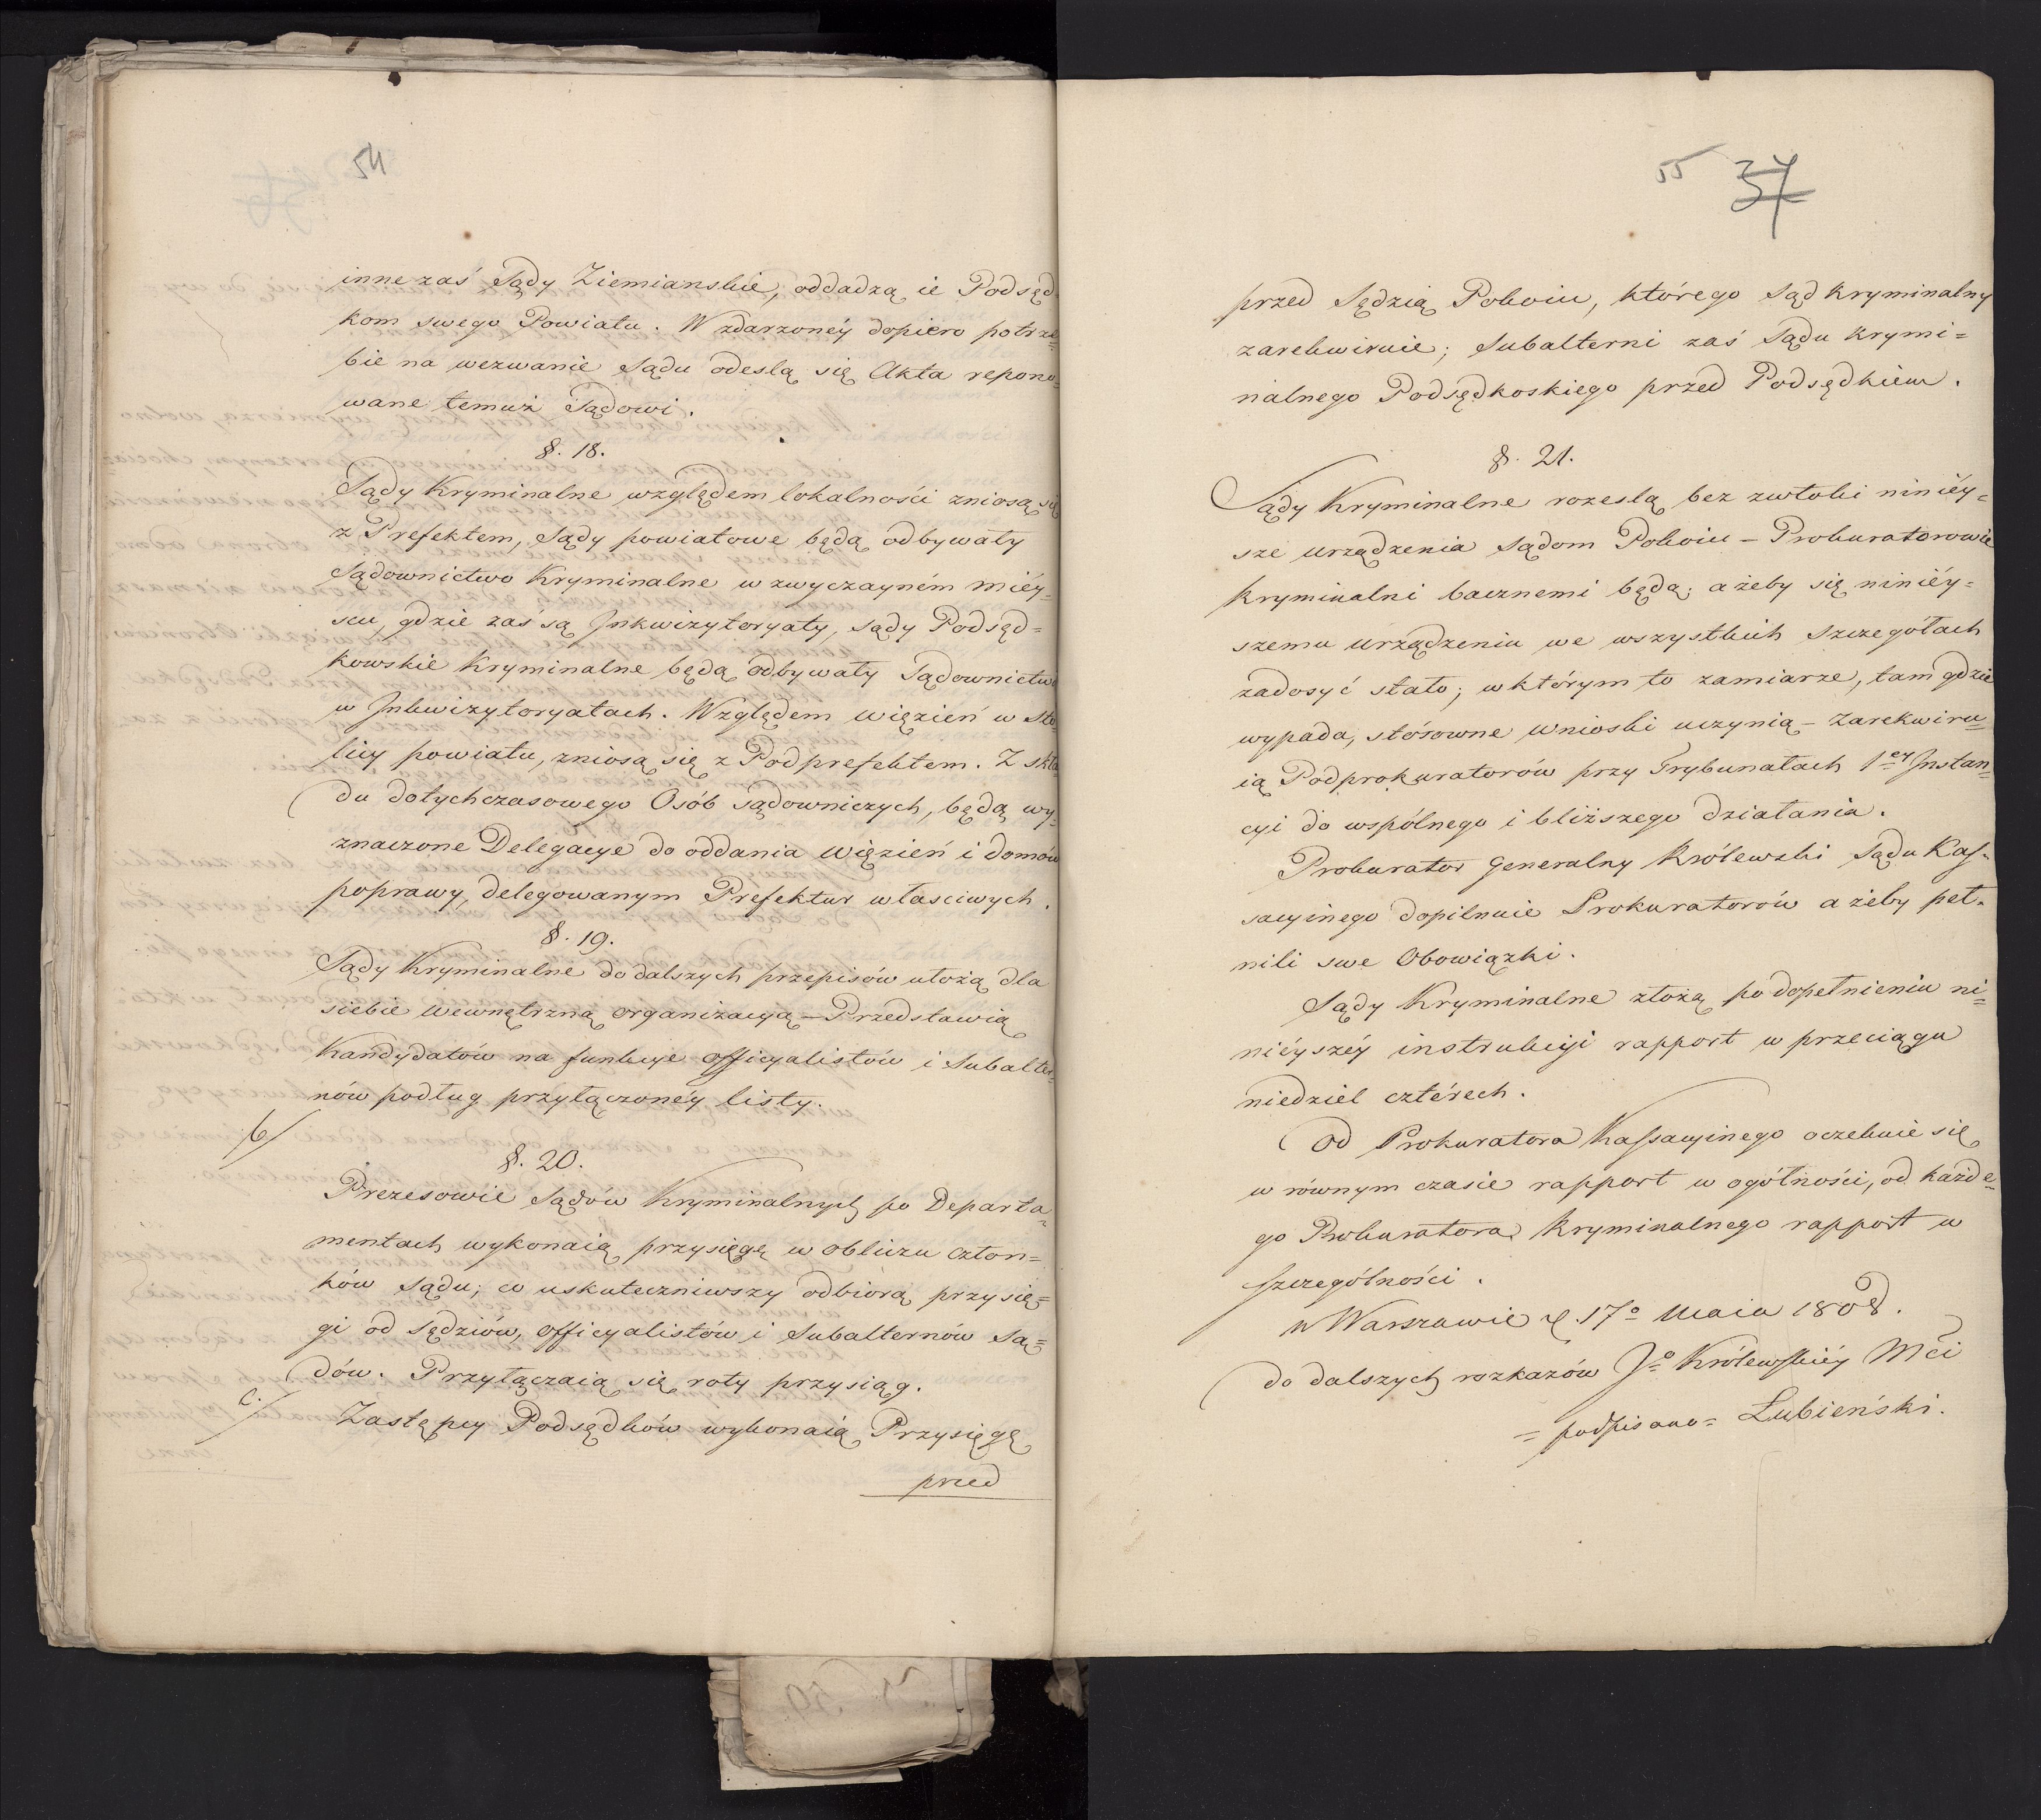 54
inne zaś Sądy Ziemianskie, oddadzą ie Podsęd
kom swego Powiatu. W zdarzonéy dopiero potrze=
bie na wezwanie Sądu odeslą się Akta repono=
wane temuż Sądowi.
§. 18.
Sądy Kryminalne względem lokalności zniosą się
z Prefektem, Sądy powiatowe będą odbywały
Sądownictwo Kryminalne w zwyczayném miéy=
scu, gdzie zaś są Inkwizytoryaty, sądy Podsęd=
kowskie Kryminalne będą odbywały Sądownictwo
w Inkwizytoryatach. Względem więzień w sto=
licy powiatu, zniosą się z Podprefektem. Z skła
du dotychczasowego Osób sądowniczych, będą wy=
znaczone Delegacye do oddania więzień i domów
poprawy, delegowanym Prefektur własciwych.
§. 19.
Sądy Kryminalne do dalszych przepisów ułożą dla
siebie wewnętrzną organizacyą – Przedstawią
Kandydatów na funkcye officyalistów i Subalter=
nów podług przyłączonéy listy.
b/
§. 20.
Prezesowie Sądów Kryminalnych po Departa=
mentach wykonaią przysięgę w obliczu człon=
ków Sądu; co uskuteczniwszy odbiorą przysię=
gi od Sędziów, officyalistów i Subalternów Są=
dów. Przyłączaią się roty przysiąg.
c./
Zastępcy Podsędków wykonaią Przysięgę
przed
55 37
przed Sędzią Pokoiu, którego Sąd Kryminalny
zarekwiruie; Subalterni zaś Sądu Krymi=
nalnego Podsędkoskiego przed Podsędkiem.
§. 21.
Sądy Kryminalne rozeslą bez zwłoki niniéy=
sze urządzenia Sądom Pokoiu – Prokuratorowie
Kryminalni bacznemi będą; ażeby się niniéy=
szemu urządzeniu we wszystkich szczegółach
zadosyć stało; w którym to zamiarze, tam gdzie
wypada, stósowne wnioski uczynią – Zarekwiru=
ią Podprokuratorów przy Trybunałach 1ey Instan=
cyi do wspólnego i bliższego działania.
Prokurator Generalny Królewski Sądu Kas=
sacyinego dopilnuie Prokuratorów ażeby peł=
nili swe Obowiązki.
Sądy Kryminalne złożą po dopełnieniu ni=
niéyszéy instrukcyi rapport w przeciągu
niedziel cztérech.
Od Prokuratora Kassacyinego oczekuie się
w równym czasie rapport w ogólności, od każde=
go Prokuratora Kryminalnego rapport w
szczególności.
w Warszawie d. 17o Maia 1808.
do dalszych rozkazów Jo Królewskiéy Mci
= podpisano = Lubieński.